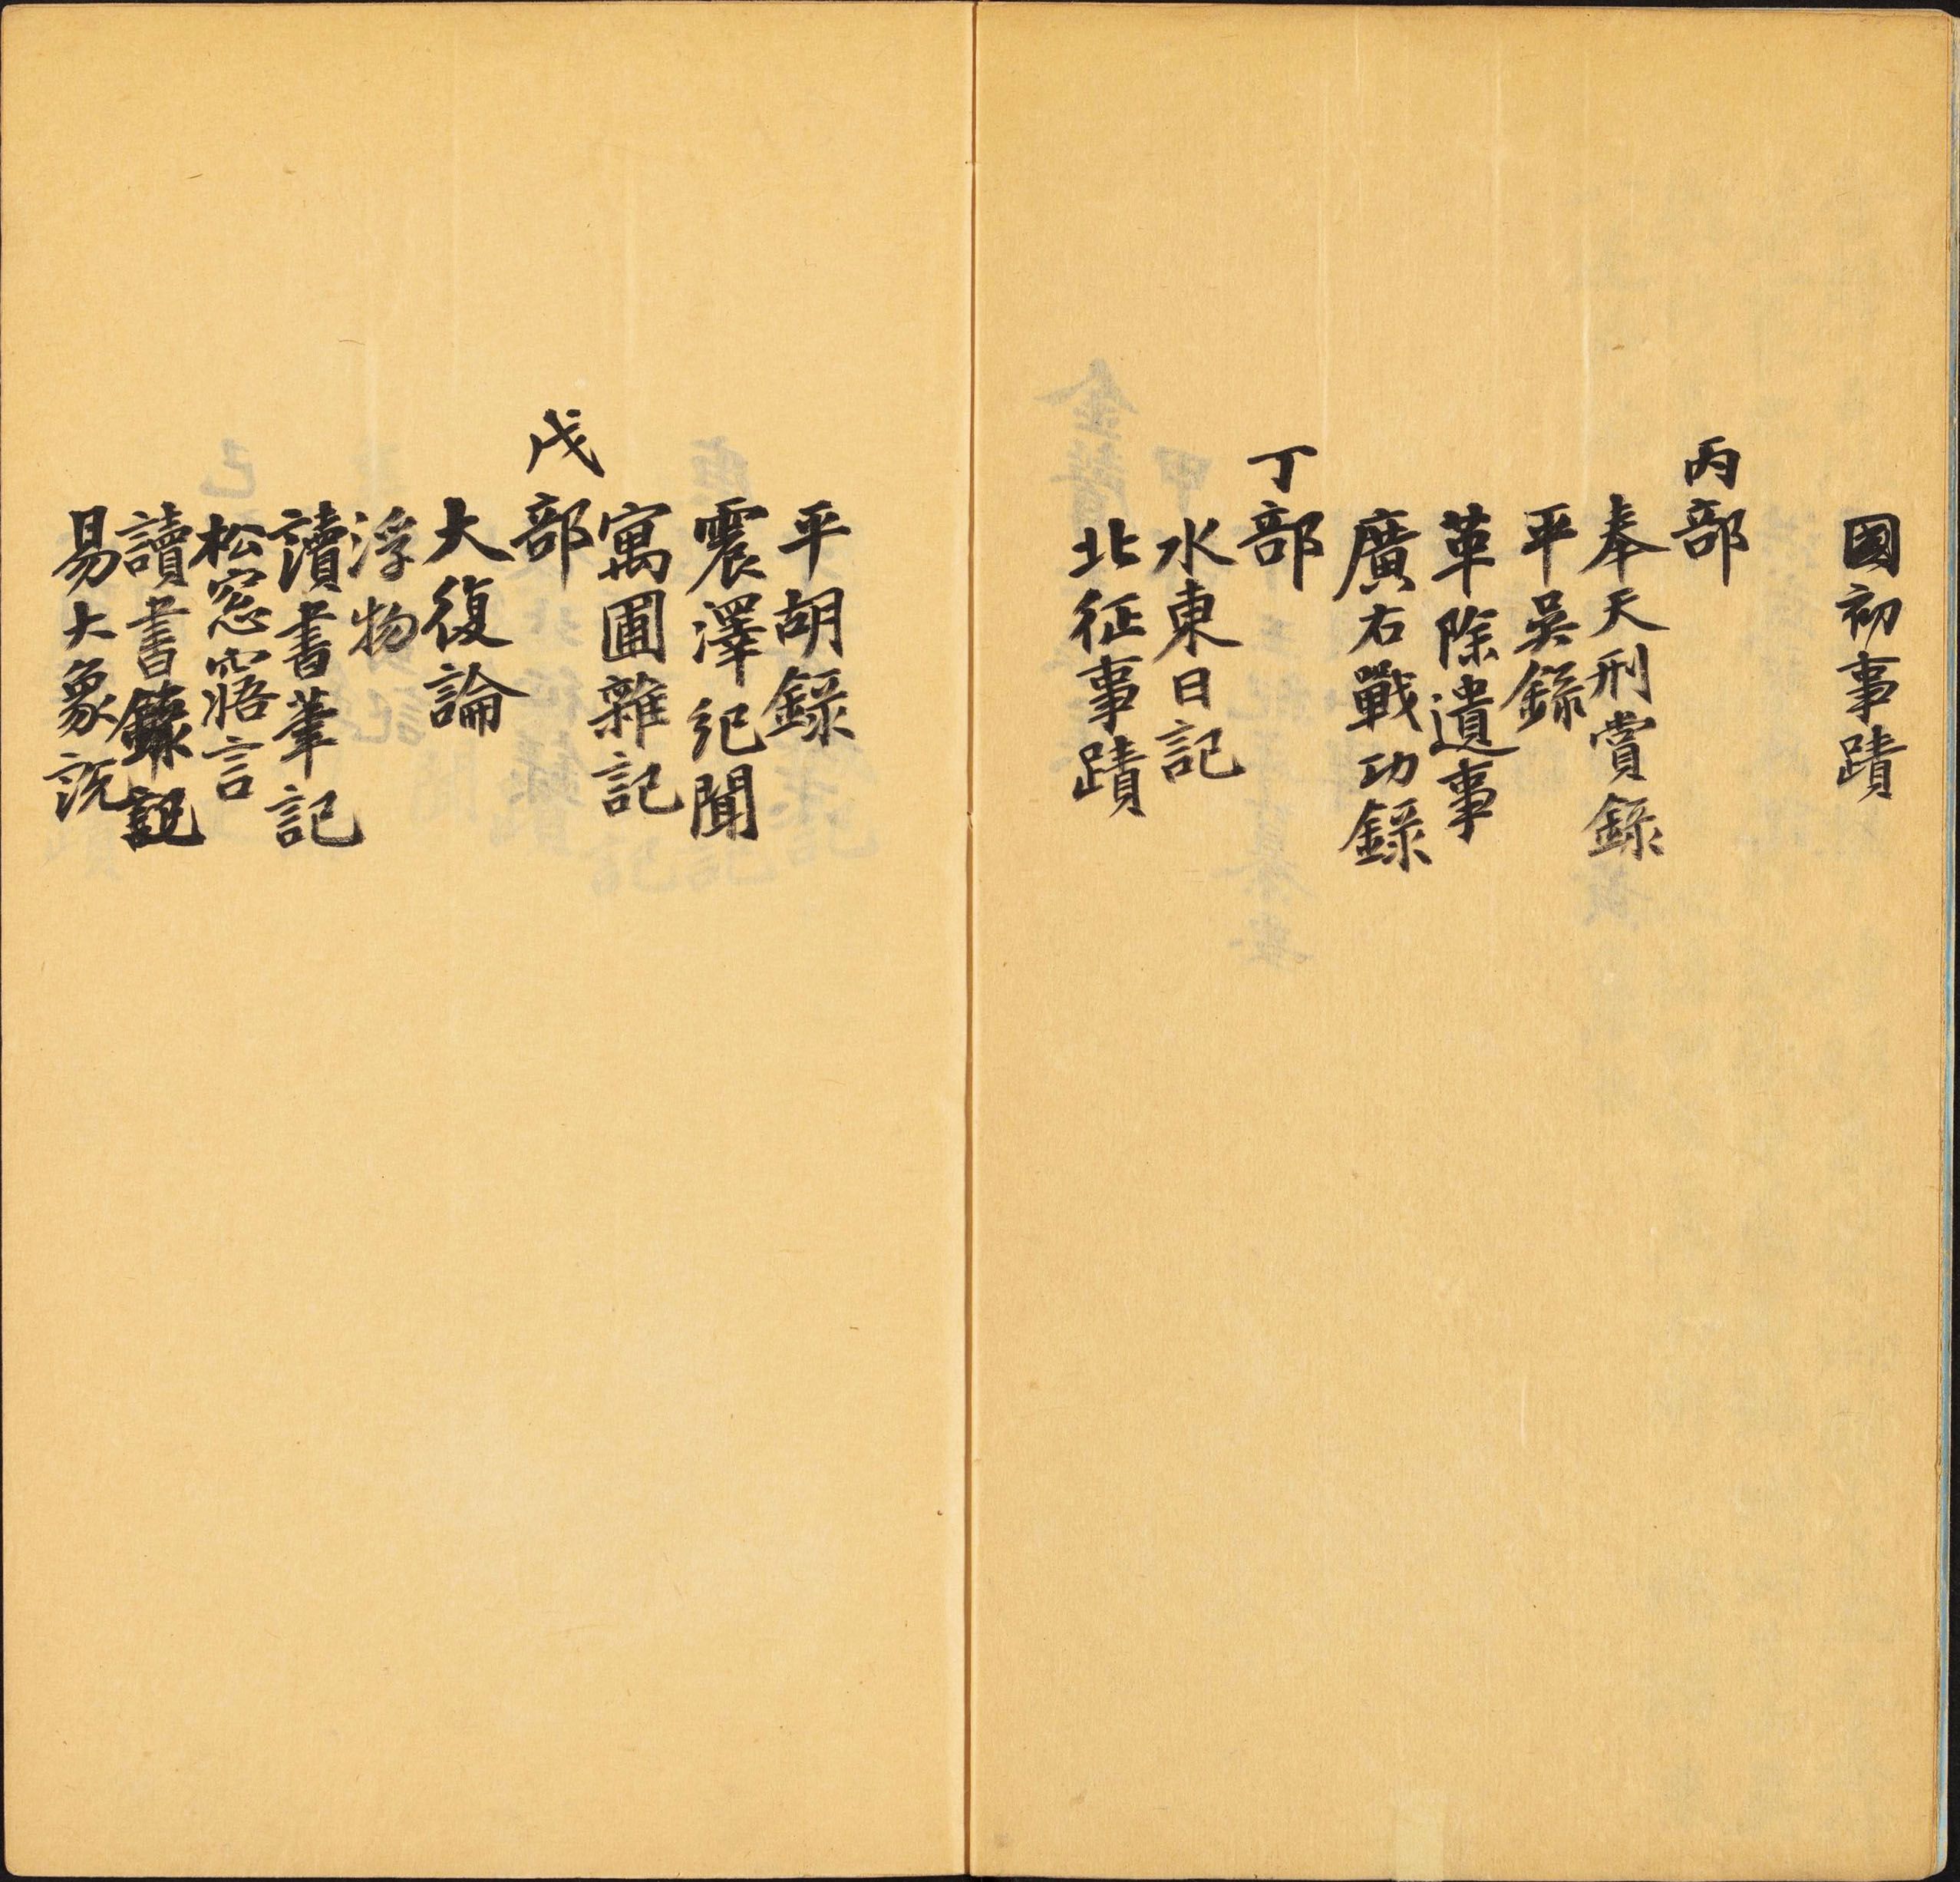 國初事蹟
丙部
奉天刑賞錄
平吳錄
革除遺事
廣右戰功錄
丁部
水東日記
北征事蹟
平胡錄
震澤紀聞
寓圃雜記
戊部
大復論
浮物
讀書筆記
松窓寤言
讀書錄
易大象說